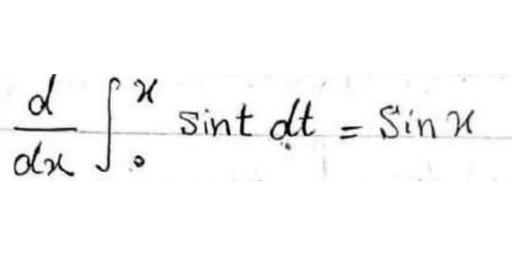 d/dx ∫₀ˣ sint dt = Sinx